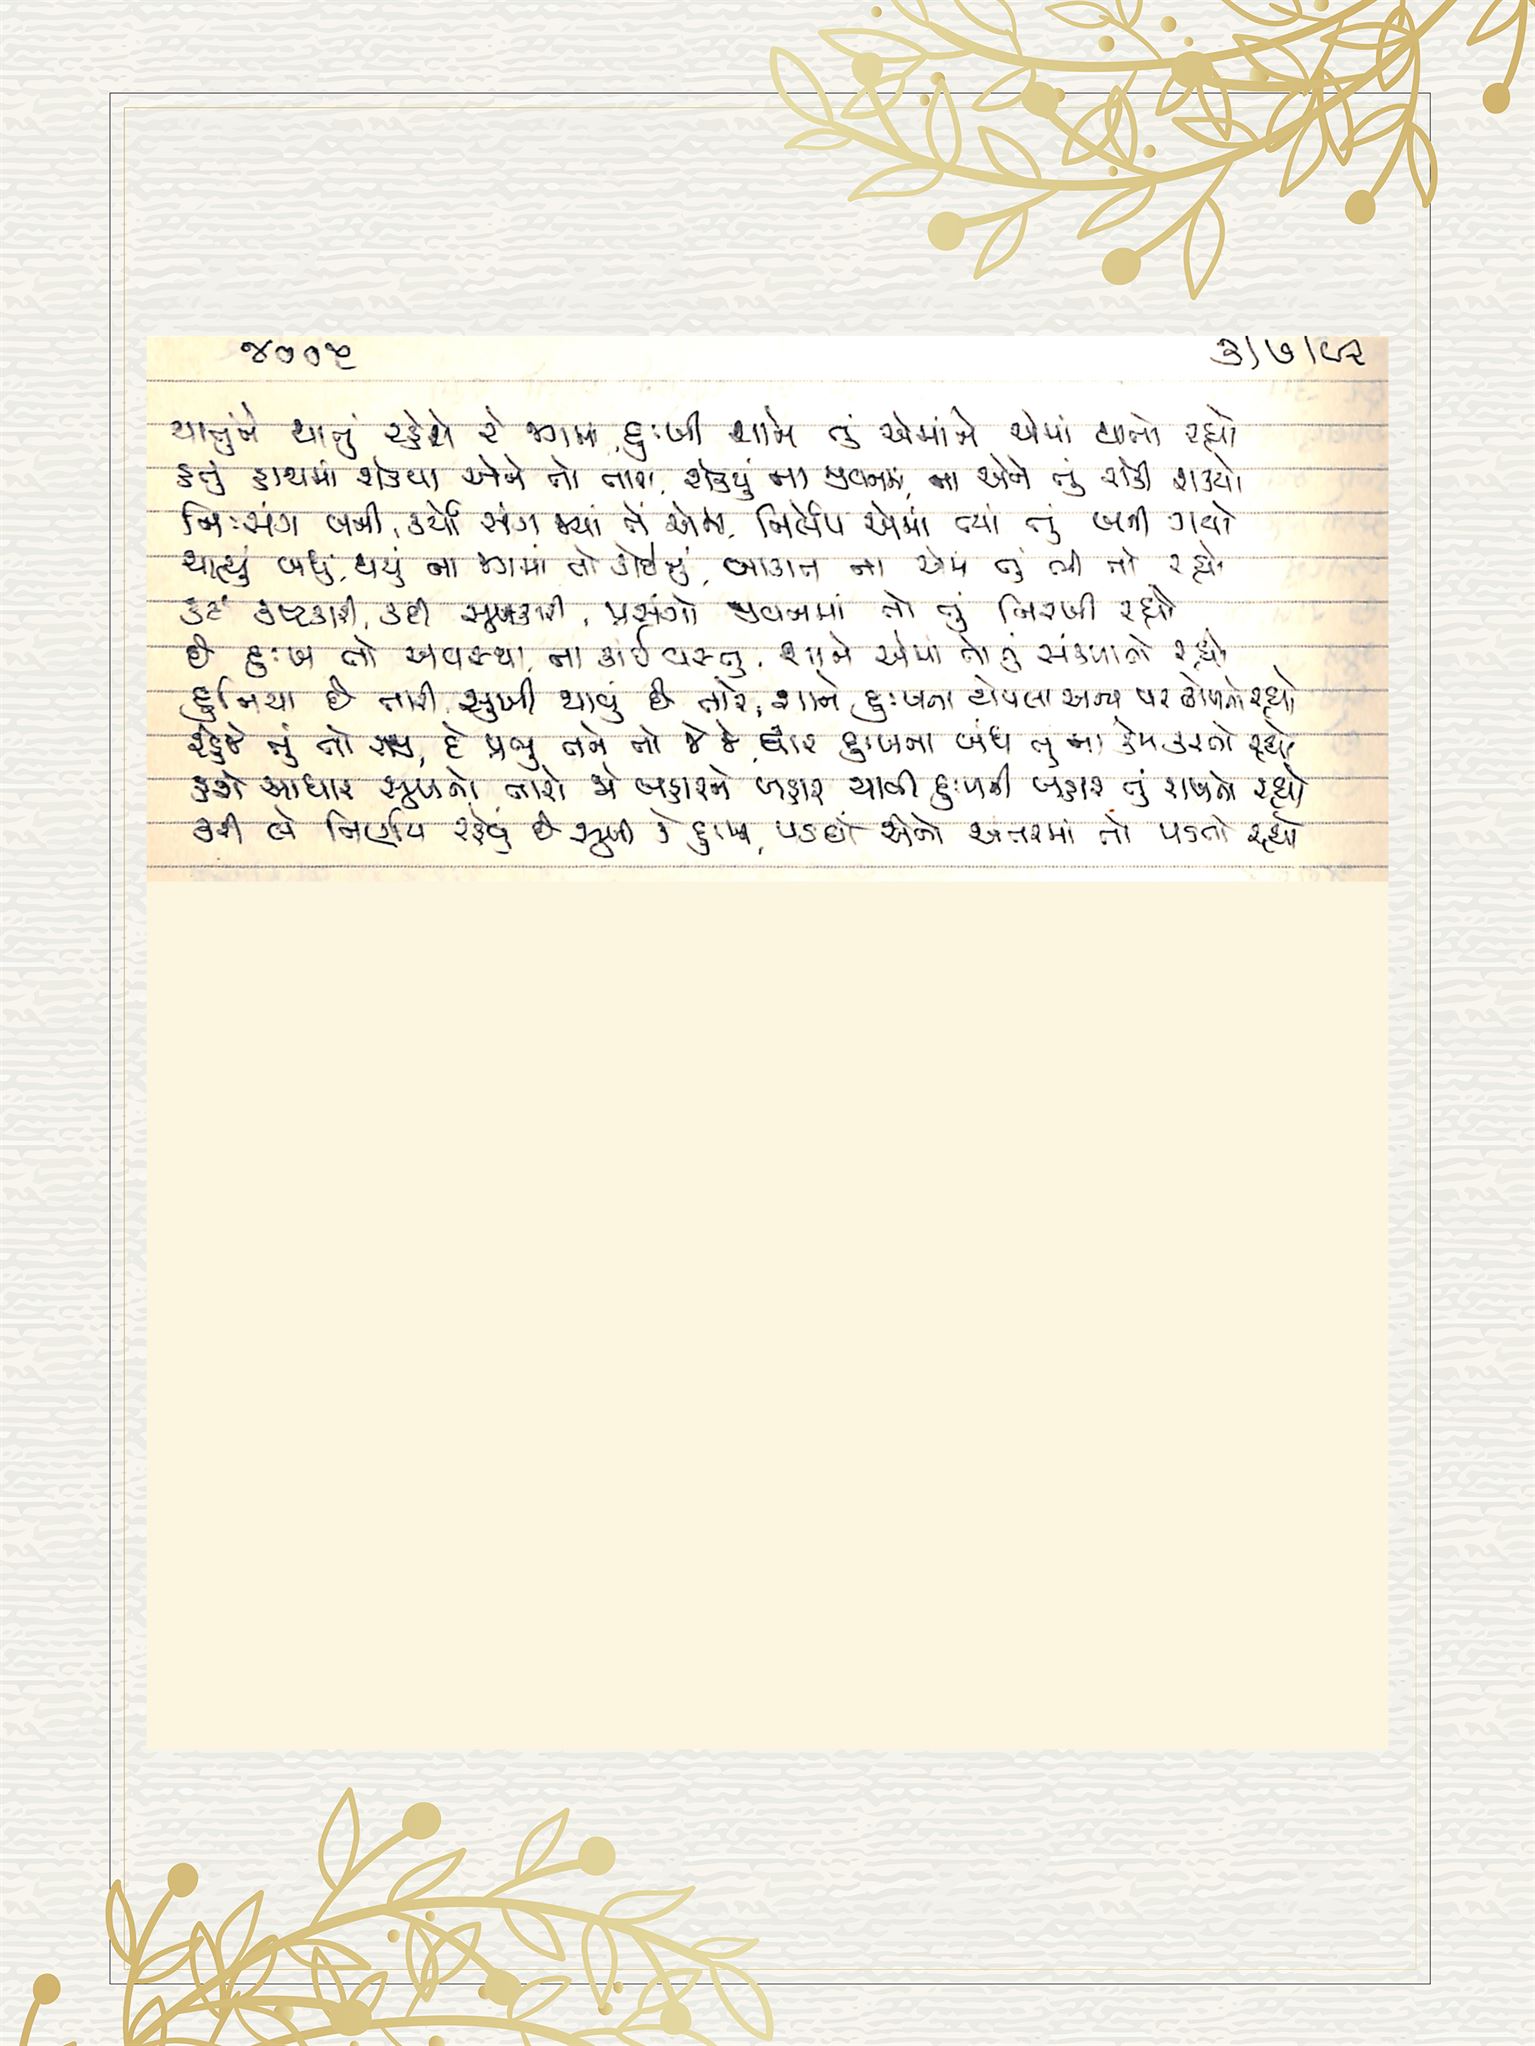 ૪૦૦૫ ૩/૭/૯૨
થાતુંને થાતું રહેશે રે જગમાં, દુઃખી શાને તું એમાંને એમાં થાતો રહ્યો
હતું હાથમાં રોકવા એને તો તારા, રોકયું ના જીવનમાં, ના એને તું રોકી શક્યો
નિઃસંગ બની, કર્યો સંગ જ્યાં તેં એમાં, નિર્લેપ એમાં ત્યાં તું બની ગયો
ચાલ્યું બધું, થયું ના જગમાં તો કોઈનું, બાકાત ના એમાં તું ભી તો રહ્યો
કદી કષ્ટકારી, કદી સુખકારી, પ્રસંગો જીવનમાં તો તું નિરખી રહ્યો
છે દુઃખ તો અવસ્થા, ના કાંઈ વસ્તુ, શાને એમાં તો તું સંકળાતો રહ્યો
દુનિયા છે તારી, સુખી થાવું છે તારે, શાને દુઃખના ટોપલા અન્ય પર ઢોળતો રહ્યો
રહેજે તું તો રાજી, દે પ્રભુ તને તો જે જે, દ્વાર દુઃખના બંધ તું ના કેમ કરતો રહ્યો
હશે આધાર સુખનો તારો જો બહારને બહાર, ચાવી દુઃખની બહાર તું રાખતો રહ્યો
કરી લે નિર્ણય રહેવું છે સુખી કે દુઃખી, પડઘો એનો અંતરમાં તો પડતો રહ્યો